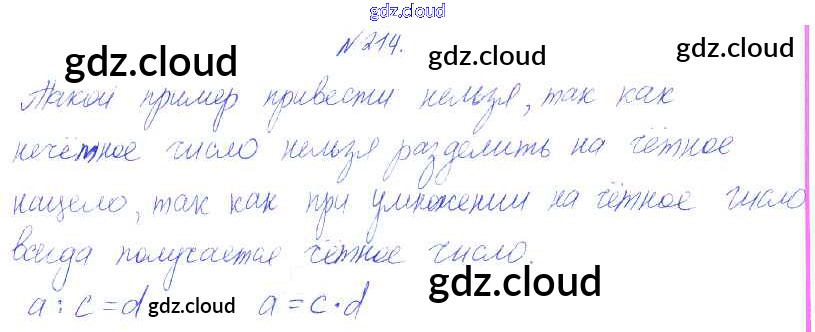 gdz.cloud
№214.
gdz.cloud gdz.cloud gdz.cloud
Такой пример привести нельзя, так как
нечётное число нельзя разделить на чётное
нацело, так как при умножении на чётное число
всегда получается чётное число.
a : c = d gdz.cloud a = c · d gdz.cloud